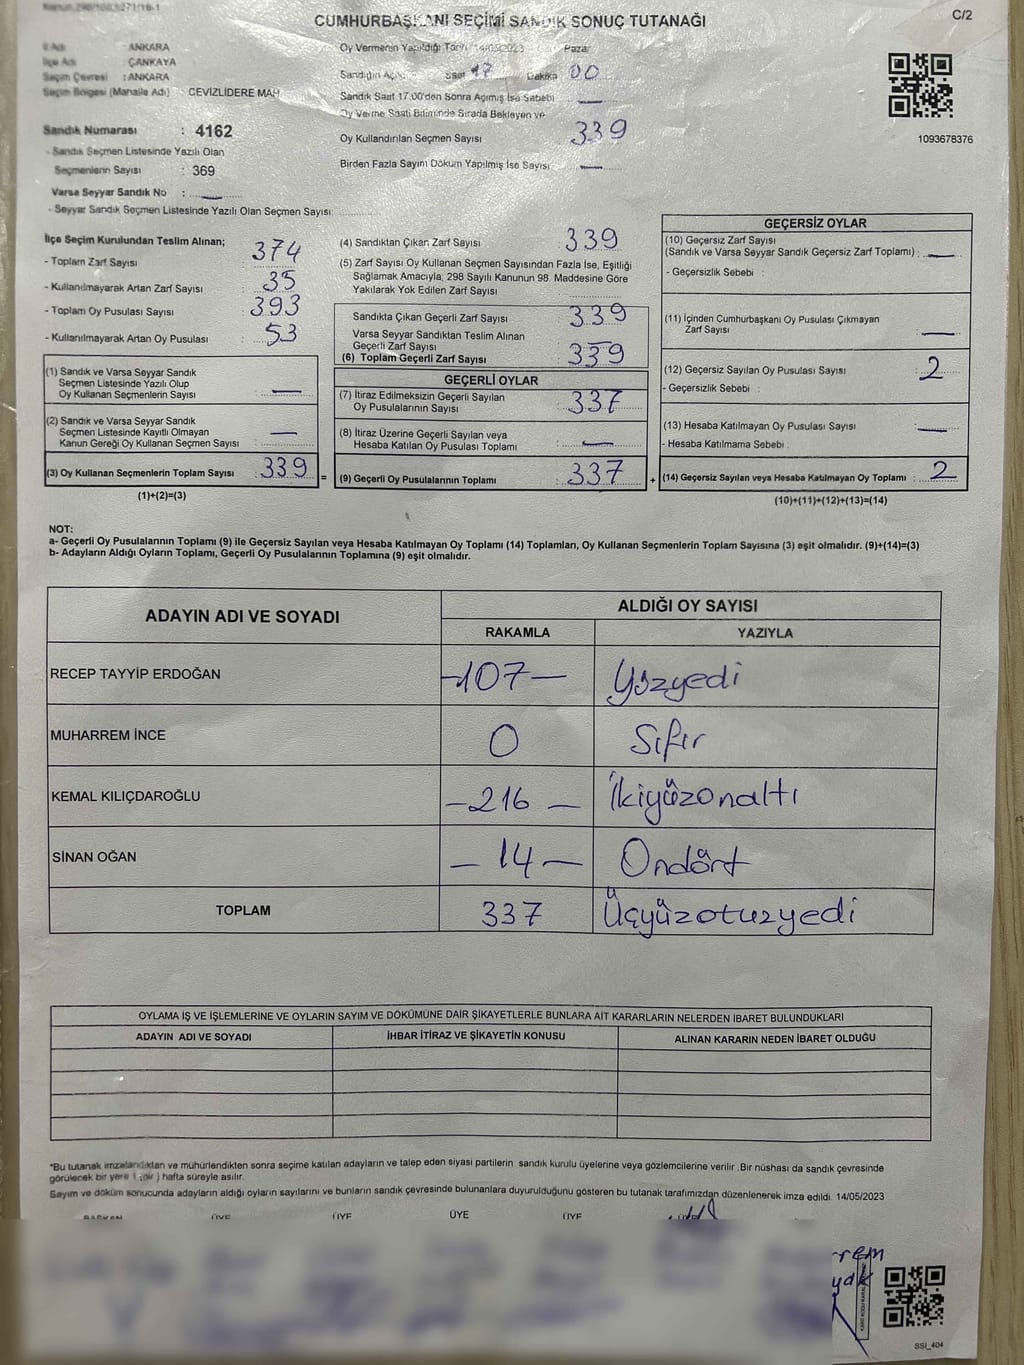 CUMHURBAŞKANI SEÇİMİ SANDIK SONUÇ TUTANAĞI
C/2
İli Adı : ANKARA
İlçe Adı : ÇANKAYA
Seçim Çevresi : ANKARA
Seçim Bölgesi (Mahalle Adı) : CEVİZLİDERE MAH
Sandık Numarası : 4162
- Sandık Seçmen Listesinde Yazılı Olan
Seçmenlerin Sayısı : 369
Varsa Seyyar Sandık No : —
- Seyyar Sandık Seçmen Listesinde Yazılı Olan Seçmen Sayısı
Oy Vermenin Yapıldığı Tarih 14/05/2023 Pazar
Sandığın Açılış Saat 17 Dakika 00
Sandık Saat 17:00'den Sonra Açılmış İse Sebebi —
Oy Verme Saati Bitiminde Sırada Bekleyen ve
Oy Kullandırılan Seçmen Sayısı 339
Birden Fazla Sayım Döküm Yapılmış İse Sayısı —
1093678376
İlçe Seçim Kurulundan Teslim Alınan;
- Toplam Zarf Sayısı : 374
- Kullanılmayarak Artan Zarf Sayısı : 35
- Toplam Oy Pusulası Sayısı : 393
- Kullanılmayarak Artan Oy Pusulası : 53
(1) Sandık ve Varsa Seyyar Sandık
Seçmen Listesinde Yazılı Olup
Oy Kullanan Seçmenlerin Sayısı : —
(2) Sandık ve Varsa Seyyar Sandık
Seçmen Listesinde Kayıtlı Olmayan
Kanun Gereği Oy Kullanan Seçmen Sayısı : —
(3) Oy Kullanan Seçmenlerin Toplam Sayısı : 339 =
(1)+(2)=(3)
(4) Sandıktan Çıkan Zarf Sayısı : 339
(5) Zarf Sayısı Oy Kullanan Seçmen Sayısından Fazla İse, Eşitliği
Sağlamak Amacıyla; 298 Sayılı Kanunun 98. Maddesine Göre
Yakılarak Yok Edilen Zarf Sayısı
Sandıkta Çıkan Geçerli Zarf Sayısı : 339
Varsa Seyyar Sandıktan Teslim Alınan
Geçerli Zarf Sayısı : —
(6) Toplam Geçerli Zarf Sayısı : 339
GEÇERLİ OYLAR
(7) İtiraz Edilmeksizin Geçerli Sayılan
Oy Pusulalarının Sayısı : 337
(8) İtiraz Üzerine Geçerli Sayılan veya
Hesaba Katılan Oy Pusulası Toplamı : —
(9) Geçerli Oy Pusulalarının Toplamı : 337 +
GEÇERSİZ OYLAR
(10) Geçersiz Zarf Sayısı
(Sandık ve Varsa Seyyar Sandık Geçersiz Zarf Toplamı) : —
- Geçersizlik Sebebi :
(11) İçinden Cumhurbaşkanı Oy Pusulası Çıkmayan
Zarf Sayısı —
(12) Geçersiz Sayılan Oy Pusulası Sayısı : 2
- Geçersizlik Sebebi :
(13) Hesaba Katılmayan Oy Pusulası Sayısı : —
- Hesaba Katılmama Sebebi :
(14) Geçersiz Sayılan veya Hesaba Katılmayan Oy Toplamı : 2
(10)+(11)+(12)+(13)=(14)
NOT:
a- Geçerli Oy Pusulalarının Toplamı (9) ile Geçersiz Sayılan veya Hesaba Katılmayan Oy Toplamı (14) Toplamları, Oy Kullanan Seçmenlerin Toplam Sayısına (3) eşit olmalıdır. (9)+(14)=(3)
b- Adayların Aldığı Oyların Toplamı, Geçerli Oy Pusulalarının Toplamına (9) eşit olmalıdır.
ADAYIN ADI VE SOYADI
ALDIĞI OY SAYISI
RAKAMLA YAZIYLA
RECEP TAYYİP ERDOĞAN -107- Yüzyedi
MUHARREM İNCE 0 Sıfır
KEMAL KILIÇDAROĞLU -216- İkiyüzonaltı
SİNAN OĞAN -14- Ondört
TOPLAM 337 Üçyüzotuzyedi
OYLAMA İŞ VE İŞLEMLERİNE VE OYLARIN SAYIM VE DÖKÜMÜNE DAİR ŞİKAYETLERLE BUNLARA AİT KARARLARIN NELERDEN İBARET BULUNDUKLARI
ADAYIN ADI VE SOYADI İHBAR İTİRAZ VE ŞİKAYETİN KONUSU ALINAN KARARIN NEDEN İBARET OLDUĞU
*Bu tutanak imzalandıktan ve mühürlendikten sonra seçime katılan adayların ve talep eden siyasi partilerin sandık kurulu üyelerine veya gözlemcilerine verilir. Bir nüshası da sandık çevresinde
görülecek bir yere 1 (bir) hafta süreyle asılır.
Sayım ve döküm sonucunda adayların aldığı oyların sayılarını ve bunların sandık çevresinde bulunanlara duyurulduğunu gösteren bu tutanak tarafımızdan düzenlenerek imza edildi. 14/05/2023
BAŞKAN ÜYE ÜYE ÜYE ÜYE
SSI_404